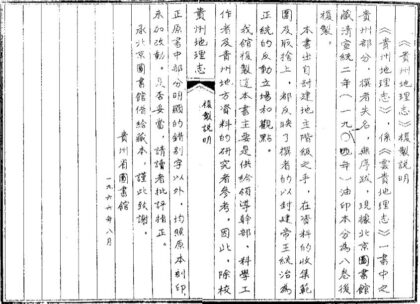 《贵州地理志》复製説明
《贵州地理志》，係《雲贵地理志》一書中之
贵州部分，撰者失名，無序跋，現據北京圖書館
藏清宣統二年（一九一〇年）油印本分為八卷復
複製。
本書出自封建地主階級之手，在資料的收集範
圍及取捨上，都反映了撰者的以封建帝王統治為
正統的反動立場和觀點。
我館複製這本書主要是供給領導幹部、科學工
作者及贵州地方資料的研究者參考，因此，除校
贵州地理志
複製説明
正原書中部分明顯的錯别字以外，均照原本刻印，
未加改動。是否妥當，請讀者批评指正。
承北京圖書館供給藏本，謹此致謝。
贵州省圖書館
一九六六年八月